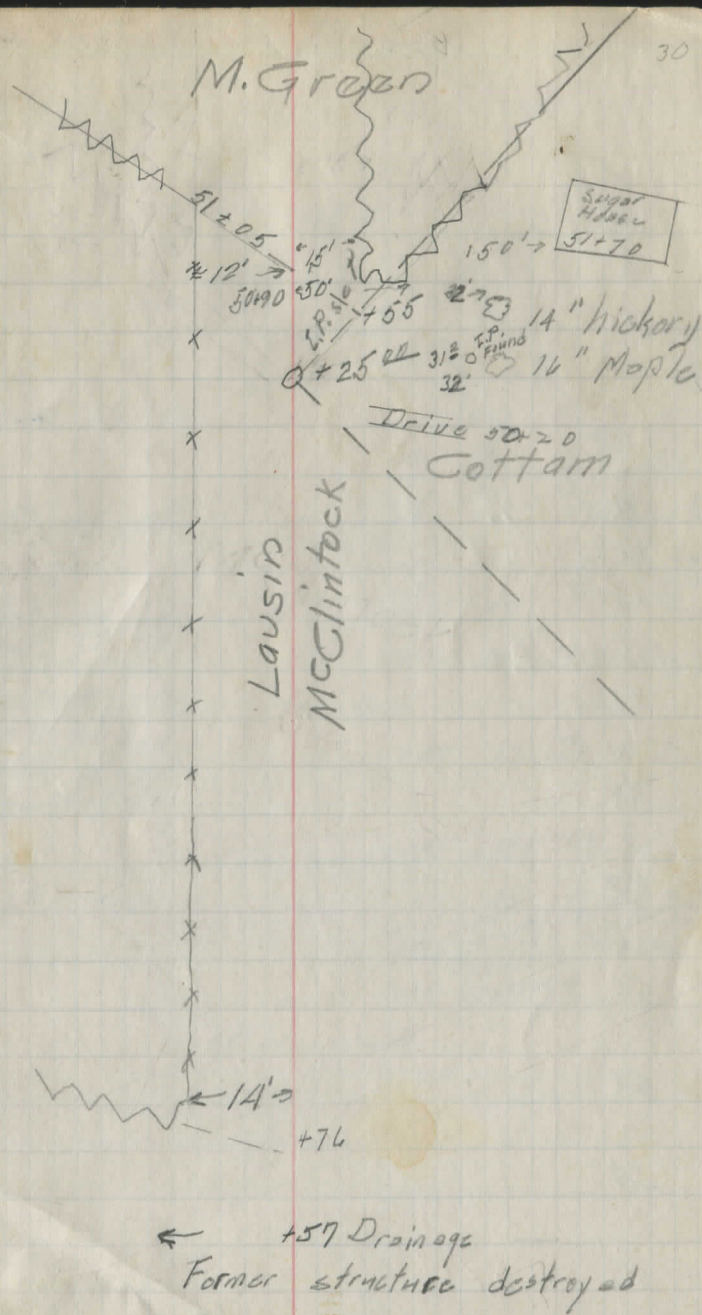 30
M. Green
Sugar
House
51+70
51+05
150' →
12' →
15'
50+90
50'
+55
14" hickory
I.P.
Found
+25
31
32'
16" Maple
Drive 50+20
Cottam
Lausin
McClintock
← 14' →
+76
← +57 Drainage
Former structure destroyed